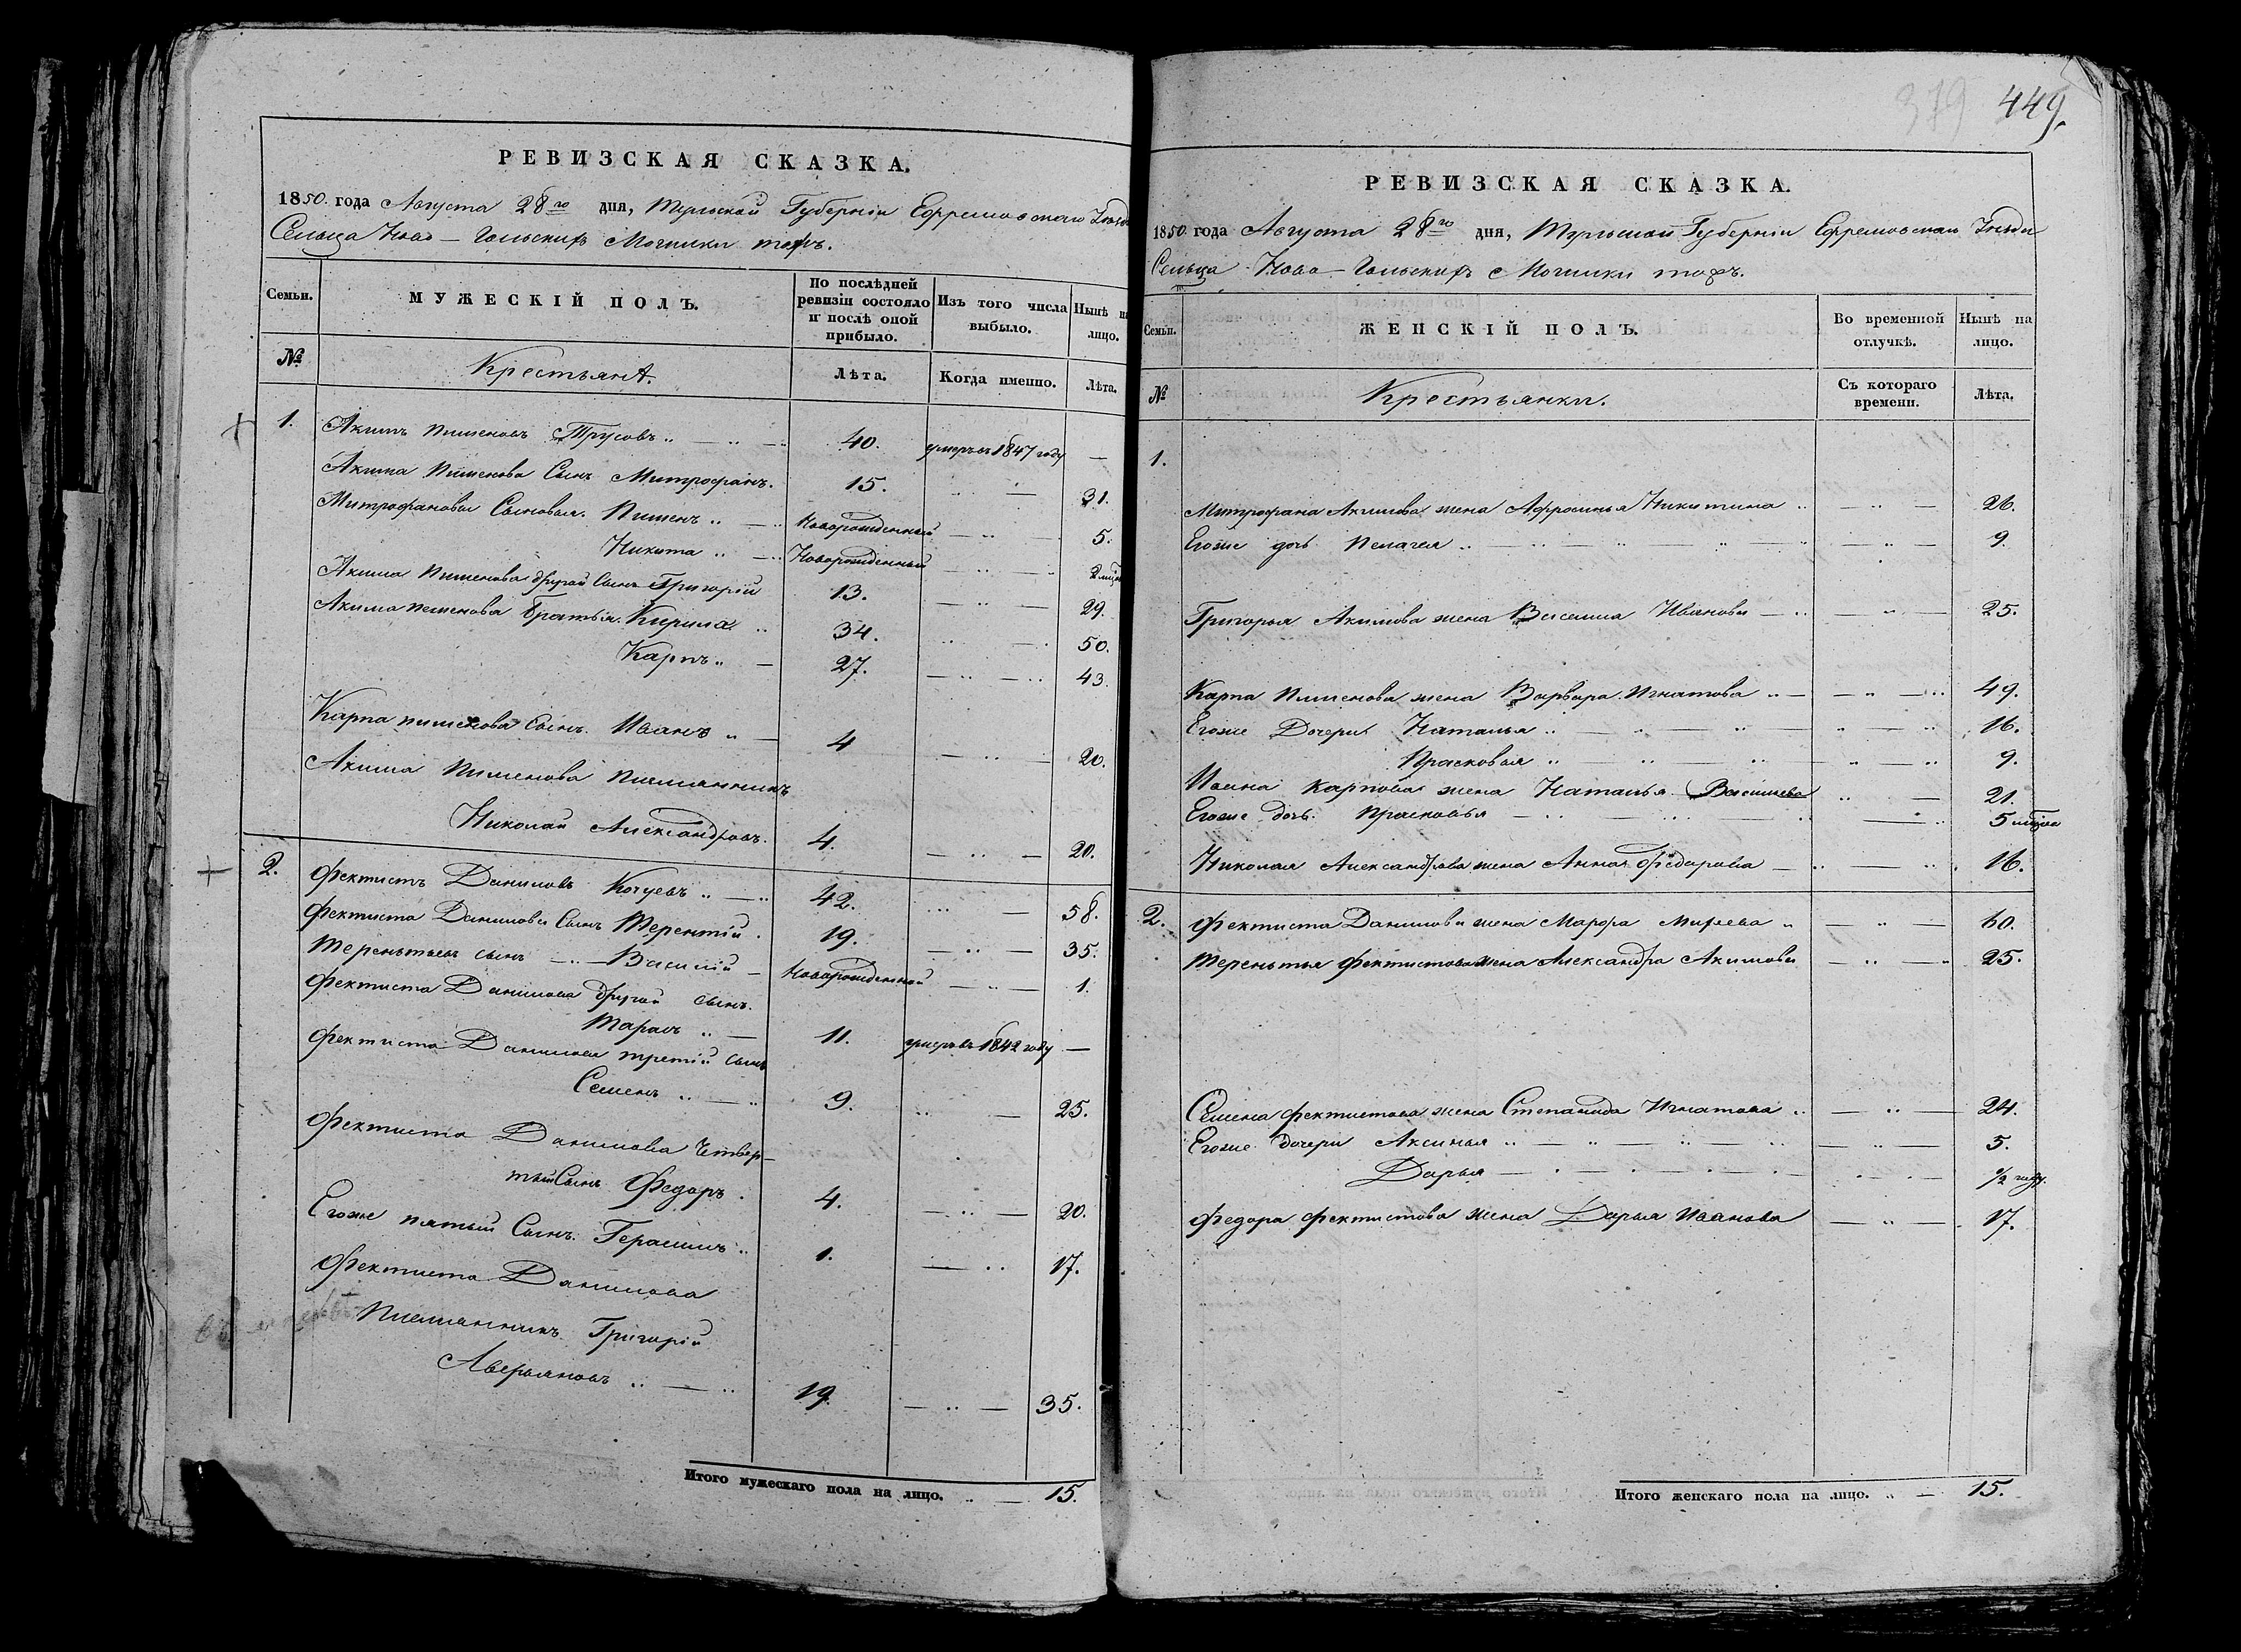 РЕВИЗСКАЯ СКАЗКА.
1850. года Августа 28го дня, Тульской Губерніи Ефремовскаго
Сельца Ново-Гольскихъ Могилки тожъ.
Семьи. МУЖЕСКІЙ ПОЛЪ. По послѣдней ревизіи состояло и послѣ оной прибыло. Изъ того числа выбыло. Нынѣ на лицо.
№ Крестьянѣ. Лѣта. Когда именно. Лѣта.
1. Акимъ Пименовъ Трусовъ 40. умеръ въ 1847 году —
Акима Пименова Сынъ Митрофанъ. 15. 31.
Митрофановы Сыновья. Пименъ Новорожденный 5.
Никита Новорожденный
Акима Пименова другой Сынъ Григорій 13. 29.
Акима Пименова братья. Кирила 34. 50.
Карпъ 27. 43.
Карпа Пименова Сынъ. Иванъ 4 20.
Акима Пименова племянникъ
Николай Александровъ. 4. 20.
2. Фектистъ Даниловъ Кочуевъ 42. 58.
Фектиста Данилова Сынъ Терентій 19. 35.
Терентьевъ сынъ Василій Новорожденной 1.
Фектиста Данилова другой сынъ.
Тарасъ 11. умеръ въ 1842 году —
Фектиста Данилова третій сынъ
Семенъ 9. 25.
Фектиста Данилова Четвер-
тый Сынъ Федоръ. 4. 20.
Егоже пятый Сынъ. Герасимъ 1. 17.
Фектиста Данилова
Племянникъ Григорій
Аверьяновъ 19. 35.
Итого мужескаго пола на лицо. 15.
379 449.
РЕВИЗСКАЯ СКАЗКА.
1850. года Августа 28го дня, Тульской Губерніи Ефремовскаго Уѣзда
Сельца Ново-Гольскихъ Могилки тожъ.
Семьи. ЖЕНСКІЙ ПОЛЪ. Во временной отлучкѣ. Нынѣ на лицо.
№ Крестьянки. Съ котораго времени. Лѣта.
1.
Митрофана Акимова жена Афросинья Никитина 26.
Егоже дочь Пелагея 9.
Григорья Акимова жена Василиса Иванова 25.
Карпа Пименова жена Варвара Игнатова 49.
Егоже Дочери Наталья 16.
Прасковья 9.
Ивана Карпова жена Наталья Васильева 21.
Егоже дочь. Прасковья 5
Николая Александрова жена Анна Федорова 16.
2. Фектиста Данилова жена Марфа 60.
Терентья Фектистова жена Александра Акимова 25.
Семена Фектистова жена Степанида Игнатова 24.
Егоже дочери Аксинья 5.
Дарья 1/2 году.
Федора Фектистова жена Дарья Иванова 17.
Итого женскаго пола на лицо. 15.